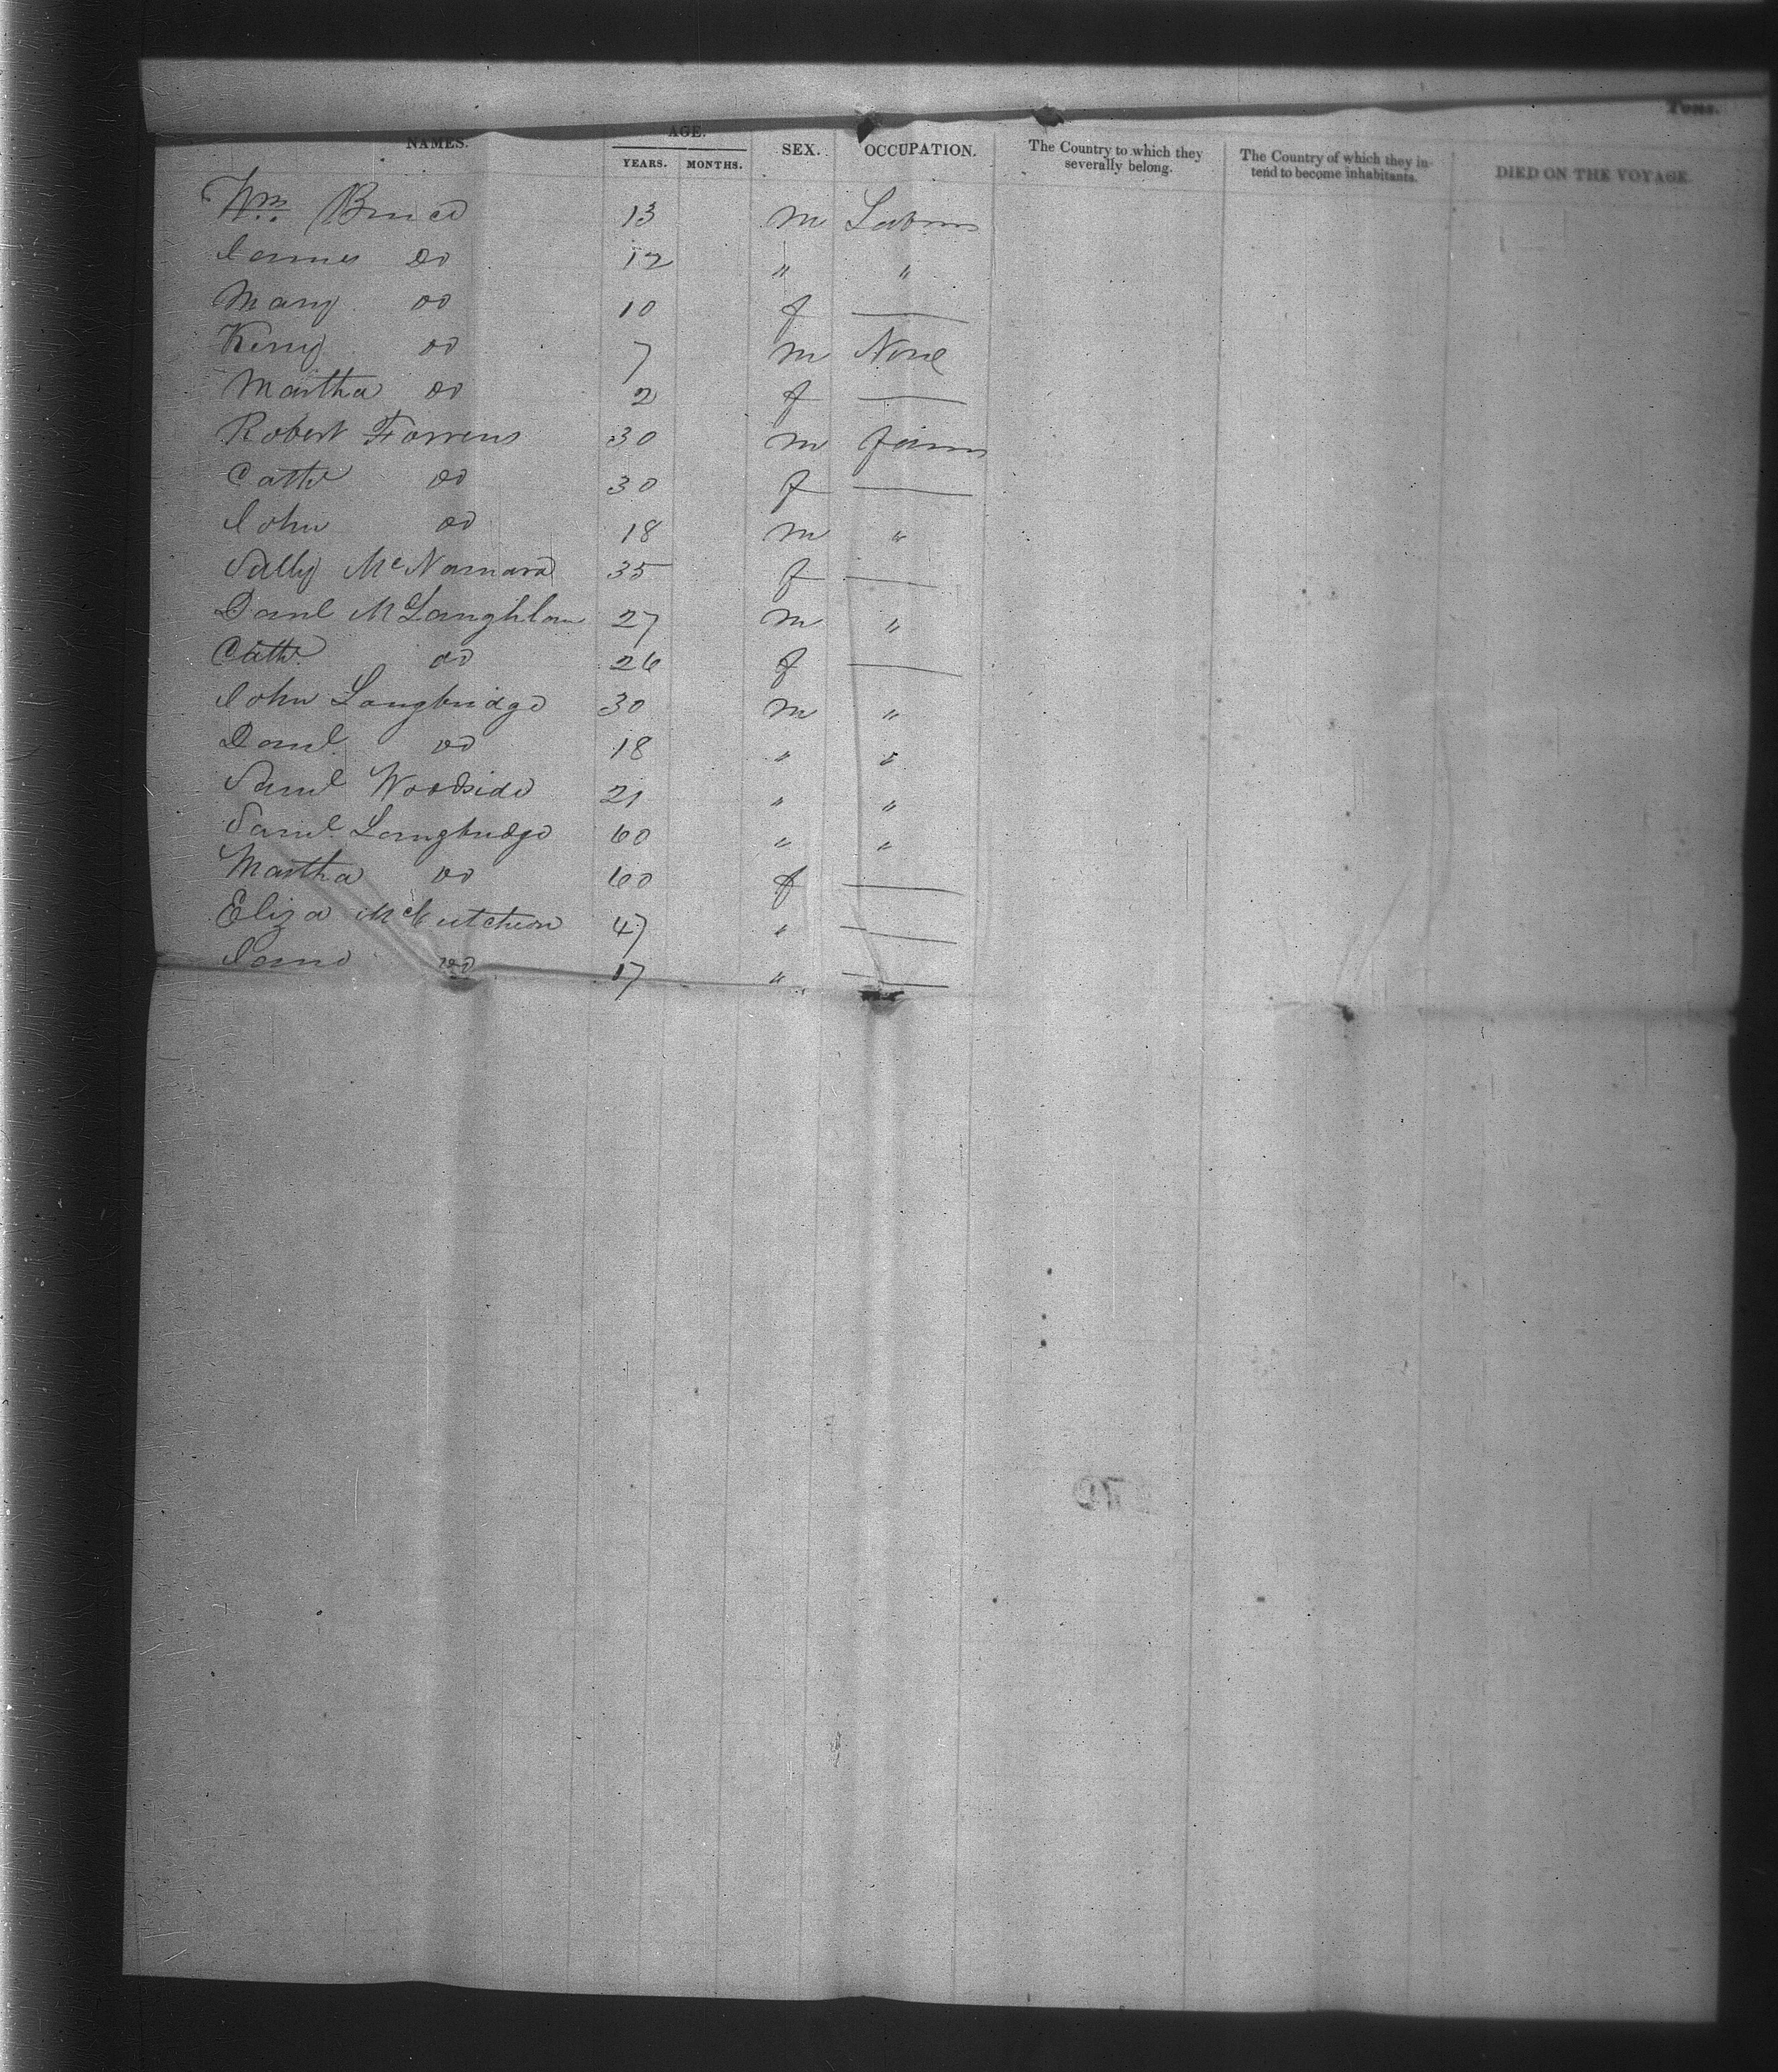 Tons.
NAMES. AGE. YEARS. MONTHS. SEX. OCCUPATION. The Country to which they severally belong. The Country of which they intend to become inhabitants. DIED ON THE VOYAGE.
Wm Bruce 13 m Labour
James Do 12 " "
Mary do 10 f —
do 7 m None
Martha do 2 f —
Robert Forrens 30 m farm
Cath do 30 f —
John do 18 m "
Sally McNamara 35 f —
Danl McLaughlan 27 m "
Cath do 26 f —
John Langbridge 30 m "
Danl do 18 " "
Saml Woodside 21 " "
Saml Langbridge 60 " "
Martha do 60 f —
Eliza McCutcheon 47 " —
Jane do 17 " —